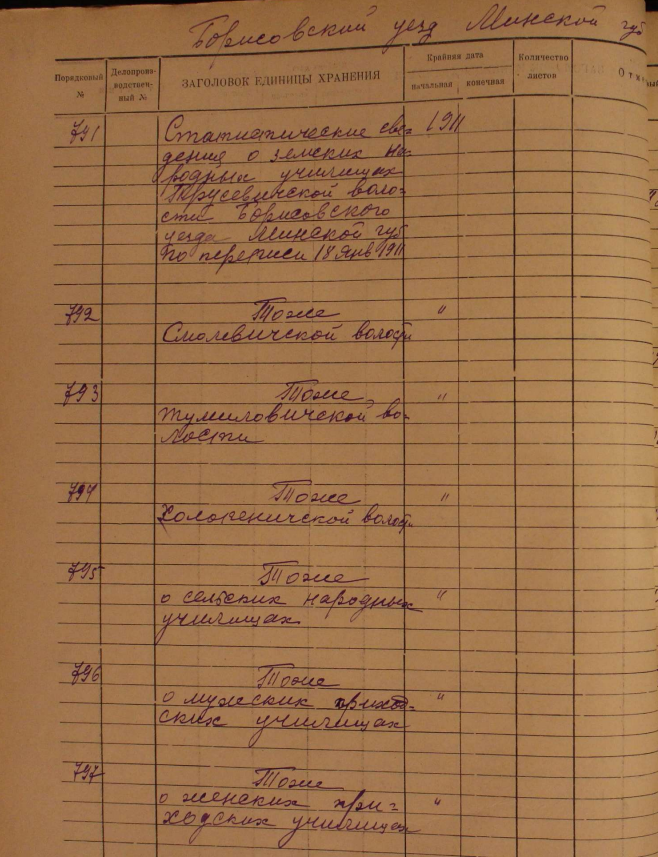 Борисовский уезд Минской губ
Порядковый № Делопроиз- водствен- ный № ЗАГОЛОВОК ЕДИНИЦЫ ХРАНЕНИЯ Крайняя дата начальная конечная Количество листов
791 Статистические све- 1911
дения о земских на-
родных училищах
Трусевичской воло-
сти Борисовского
уезда Минской губ
по переписи 18 янв 1911
792 Тоже "
Смолевичской волости
793 Тоже "
Тумиловичской во-
лости
794 Тоже "
Холопеничской волости
795 Тоже
о сельских народных "
училищах
796 Тоже
о мужских приход- "
ских училищах
797 Тоже
о женских при- "
ходских училищах